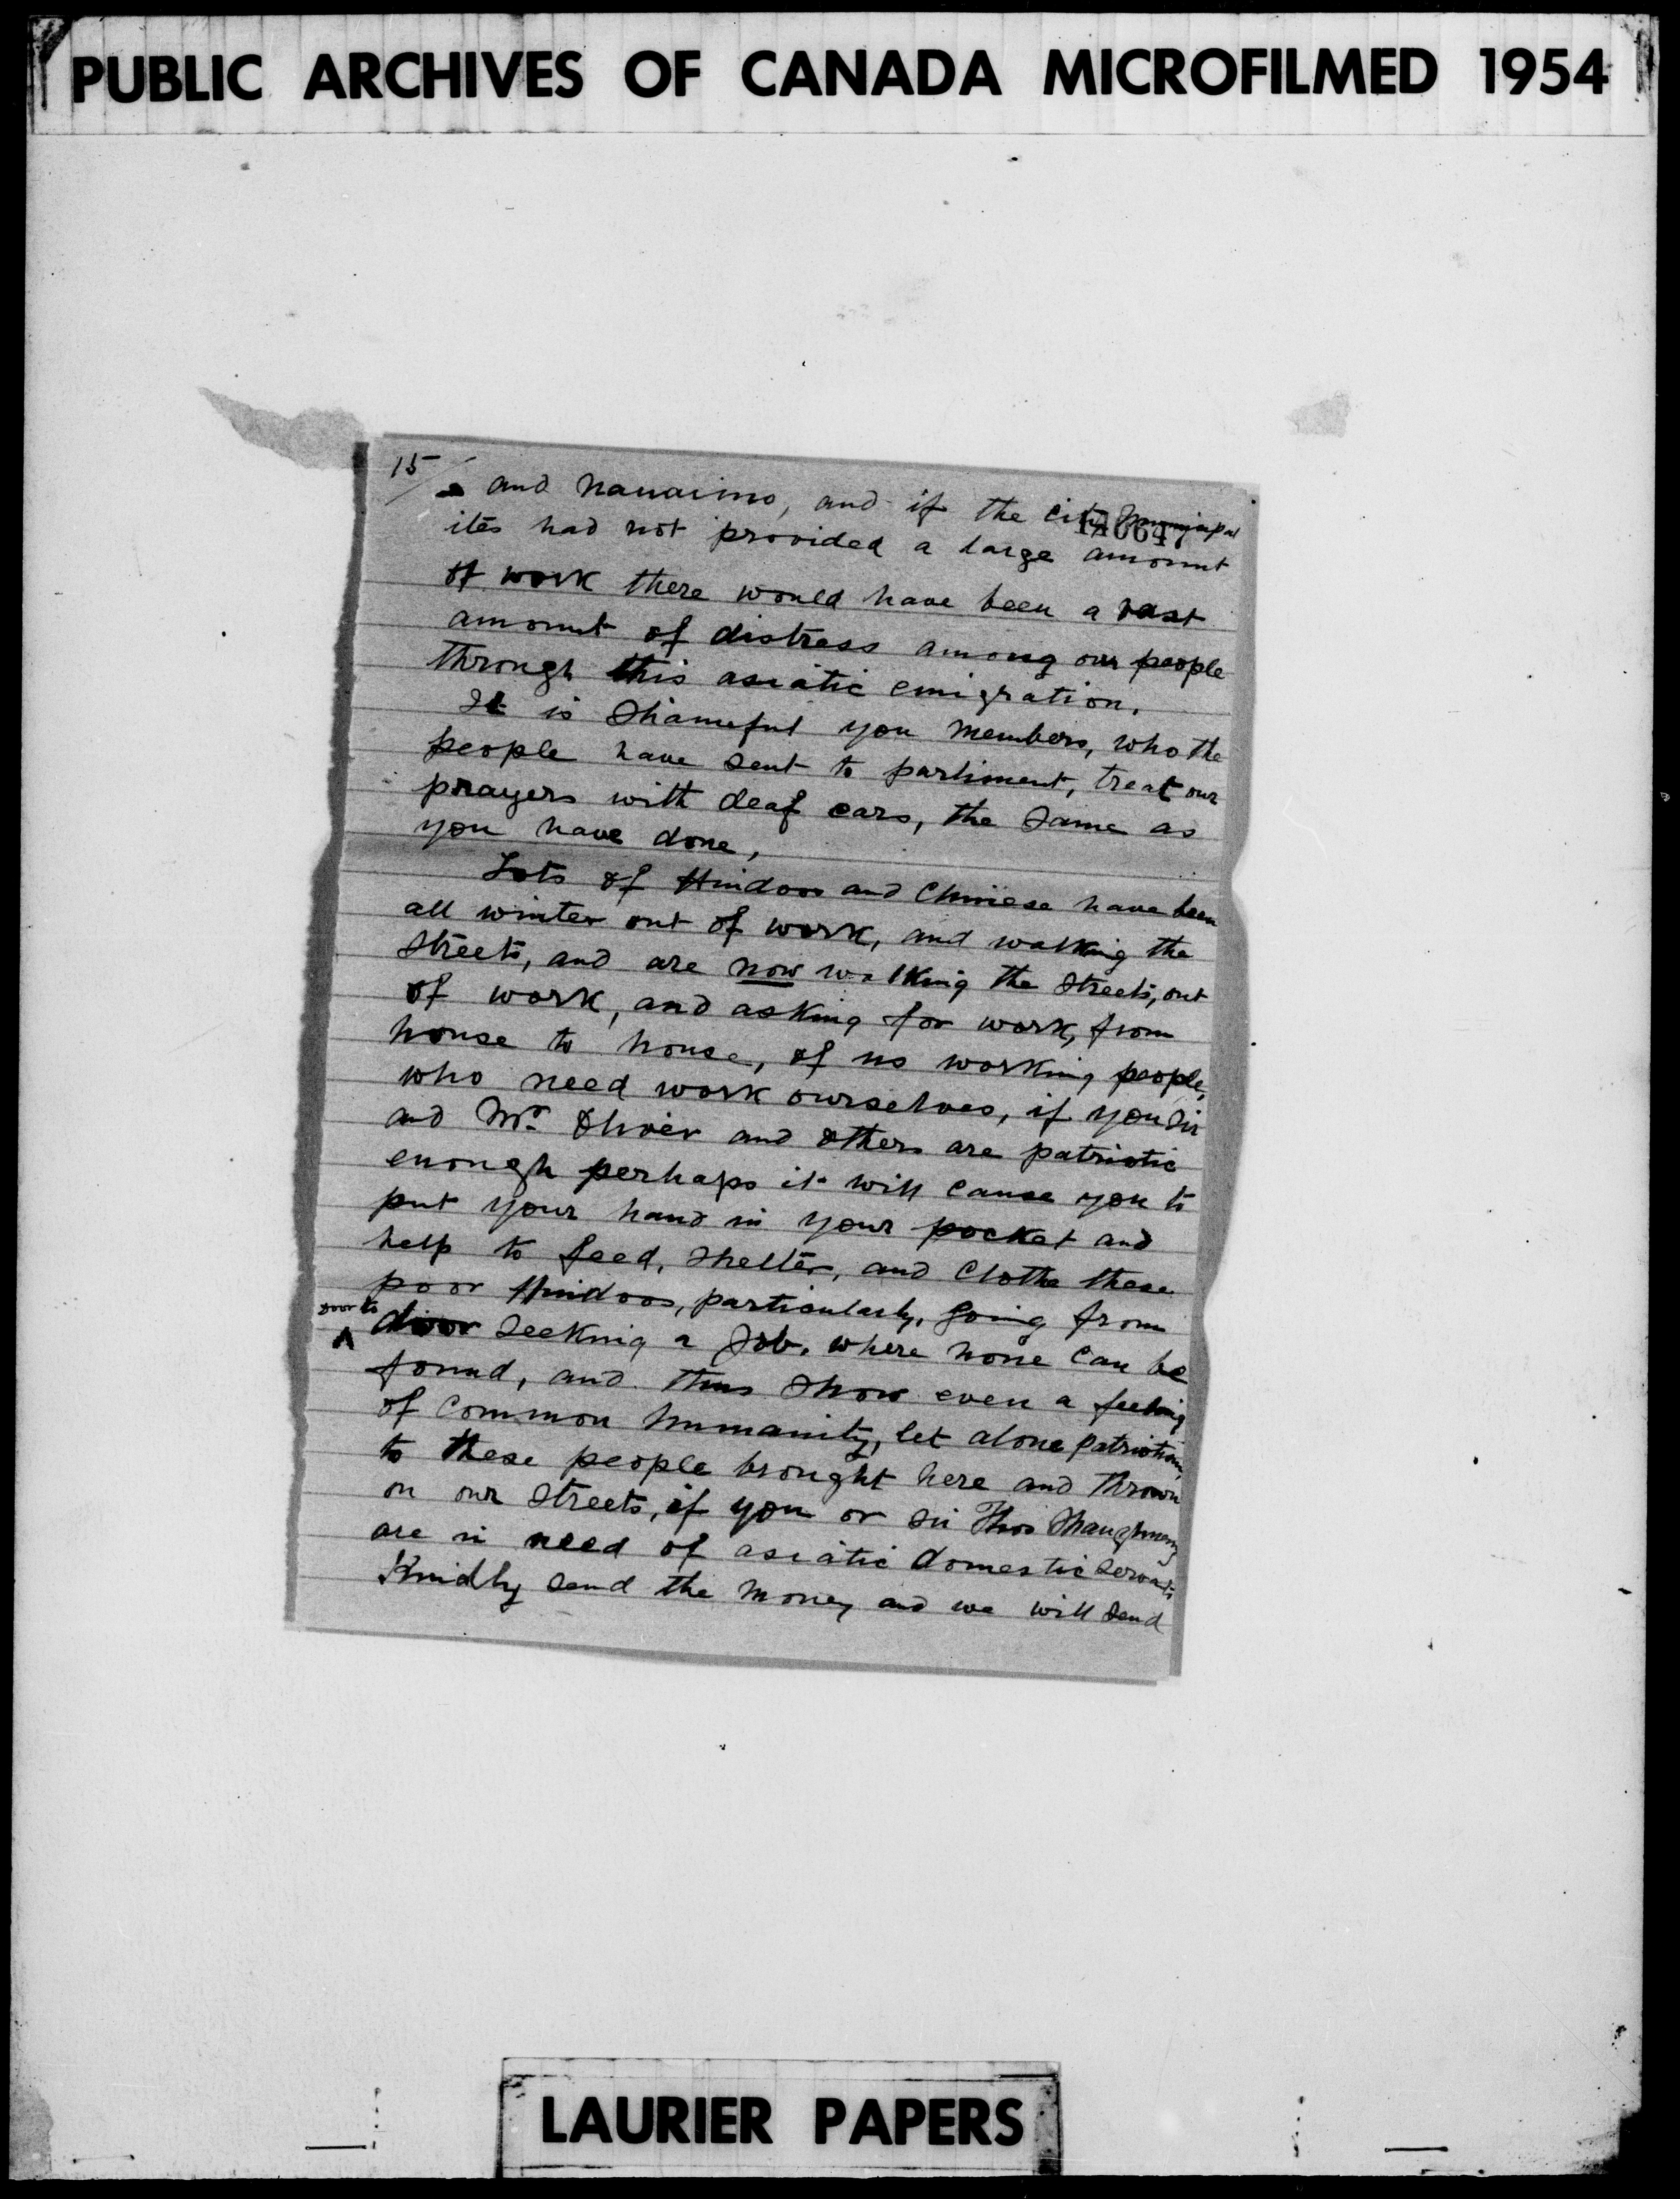 PUBLIC ARCHIVES OF CANADA MICROFILMED 1954
15/
and Nanaimo, and if the city municipal
ites had not provided a large amount
of work there would have been a vast
amount of distress among our people
through this asiatic emigration.
It is Shameful you members, who the
people have sent to parliment, treat our
prayers with deaf ears, the Same as
you have done,
Lots of Hindoos and Chinese have been
all winter out of work, and walking the
Streets, and are now walking the Streets, out
of work, and asking for work, from
house to house, of us working people,
who need work ourselves, if you Sir
and Mr. Oliver and others are patriotic
enough perhaps it will cause you to
put your hand in your pocket and
help to feed, shelter, and Clothe these
poor Hindoos, particularly, going from
door to
door Seeking a Job, where none can be
found, and thus Show even a feeling
of Common humanity, let alone patriotism,
to these people brought here and thrown
on our Streets, if you or Sir Thos Shaughnessy
are in need of asiatic domestic Servants
Kindly Send the money and we will Send
LAURIER PAPERS